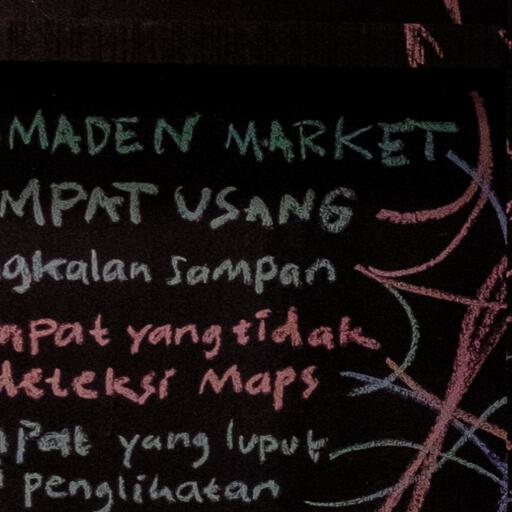 MADEN MARKET
MPAT USANG
gkalan sampan
mpat yang tidak
deteksi Maps
mpat yang luput
i penglihatan